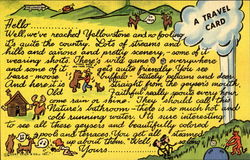 A TRAVEL
CARD
Hello
Well, we've reached Yellowstone and no fooling
it's quite the country. Lots of streams and
hills and cañons and pretty scenery – some of it
wearing shorts. There's wild game everywhere
and some of it gets quite friendly. You see
bears – moose – buffalo – stately pelicans and deer.
And here it is straight from the geyser's mouth
Old Faithful really spouts every hour
come rain or shine. They should call this
Nature's Bathroom – there is so much hot and
cold running water. It's sure interesting
to see all these geysers and beautifully colored
pools and terraces. You get all steamed
up about them. Well, so long
Yours